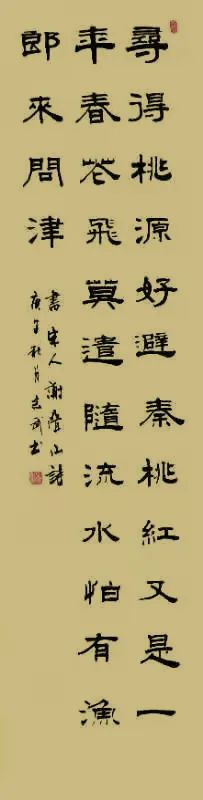 尋得桃源好避秦桃紅又是一
年春花飛莫遣隨流水怕有漁
郎來問津
書宋人謝疊山詩
秋月志武书